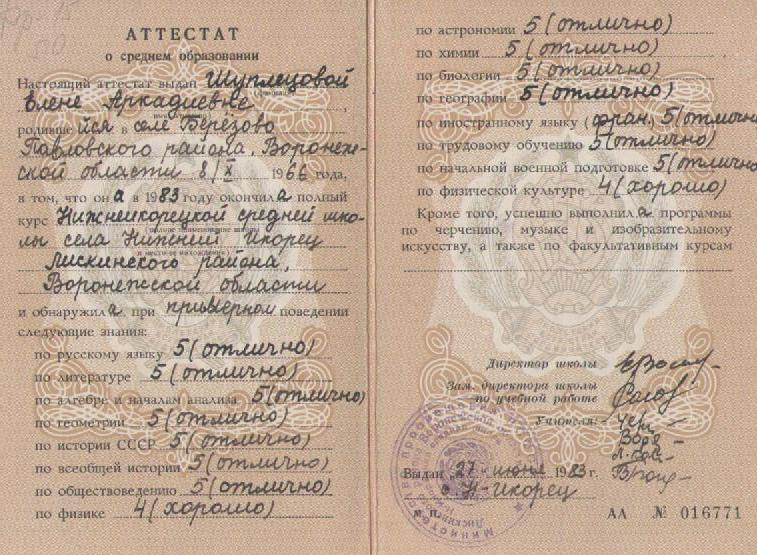 АТТЕСТАТ
о среднем образовании
Настоящий аттестат выдан Шуплецовой
Елене Аркадиевне
родившейся в селе Берёзово
Павловского района, Воронеж-
ской области 8/X 1966 года,
в том, что она в 1983 году окончила полный
курс Нижнеикорецкой средней шко-
лы села Нижний Икорец
Лискинского района,
Воронежской области
и обнаружила при примерном поведении
следующие знания:
по русскому языку 5 (отлично)
по литературе 5 (отлично)
по алгебре и началам анализа 5 (отлично)
по геометрии 5 (отлично)
по истории СССР 5 (отлично)
по всеобщей истории 5 (отлично)
по обществоведению 5 (отлично)
по физике 4 (хорошо)
по астрономии 5 (отлично)
по химии 5 (отлично)
по биологии 5 (отлично)
по географии 5 (отлично)
по иностранному языку (фран. 5 (отлично
по трудовому обучению 5 (отлично)
по начальной военной подготовке 5 (отлично
по физической культуре 4 (хорошо)
Кроме того, успешно выполнила программы
по черчению, музыке и изобразительному
искусству, а также по факультативным курсам
Директор школы
Зам. директора школы
по учебной работе
Учителя:
Выдан 27 июня 1983 г.
с. Н-Икорец
М. П.
АА № 016771